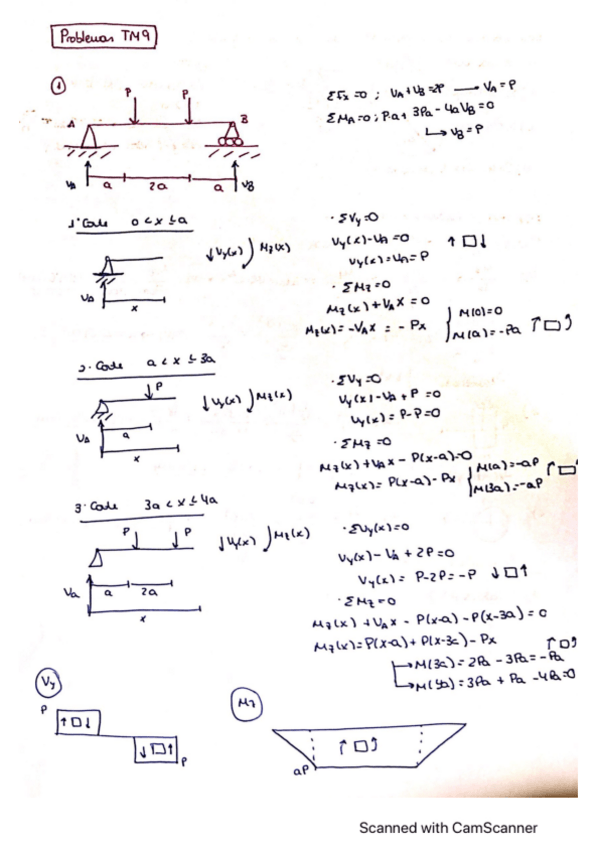 Problemas TM9
1
P P
A B
VA a 2a a VB
ΣFx=0 ; VA+VB=2P → VA=P
ΣMA=0 ; P·a + 3Pa - 4aVB=0
→ VB=P
1· Corte 0<x≤a
VA
x
↓Vy(x) ) Mz(x)
· ΣVy=0
Vy(x)-VA=0 ↑□↓
Vy(x)=VA=P
· ΣMz=0
Mz(x)+VAx=0
Mz(x)=-VAx = -Px { M(0)=0
M(a)=-Pa
2· Corte a<x≤3a
P
VA a
x
↓Vy(x) ) Mz(x)
· ΣVy=0
Vy(x)-VA+P=0
Vy(x)=P-P=0
· ΣMz=0
Mz(x)+VAx-P(x-a)=0
Mz(x)=P(x-a)-Px { M(a)=-aP
M(3a)=-aP
3· Corte 3a<x≤4a
P P
VA a 2a
x
↓Vy(x) ) Mz(x)
· ΣVy(x)=0
Vy(x)-VA+2P=0
Vy(x)=P-2P=-P ↓□↑
· ΣMz=0
Mz(x)+VAx-P(x-a)-P(x-3a)=0
Mz(x)=P(x-a)+P(x-3a)-Px
→M(3a)=2Pa-3Pa=-Pa
→M(4a)=3Pa+Pa-4Pa=0
Vy
P
↑□↓
↓□↑
P
Mz
aP
Scanned with CamScanner